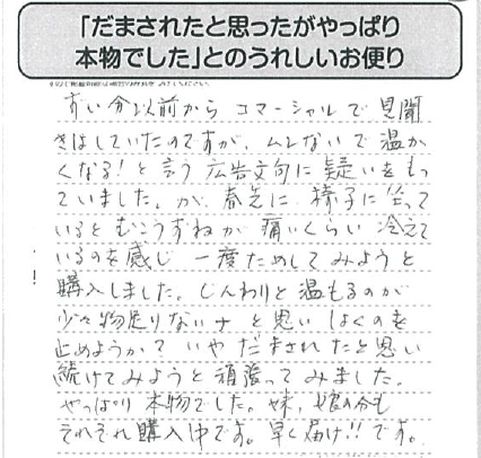 「だまされたと思ったがやっぱり
本物でした」とのうれしいお便り
ずい分以前から コマーシャルで見聞
きはしていたのですが、ムレないで温か
くなる!と言う広告文句に疑いをもっ
ていました。が、春先に椅子に坐って
いるとむこうずねが痛いくらい冷えて
いるのを感じ 一度ためしてみようと
購入しました。じんわりと温もるのが
少々物足りないナと思い はくのを
止めようか?いやだまされたと思い
続けてみようと頑張ってみました。
やっぱり本物でした。妹、娘の分も
それぞれ購入中です。早く届け!!です。